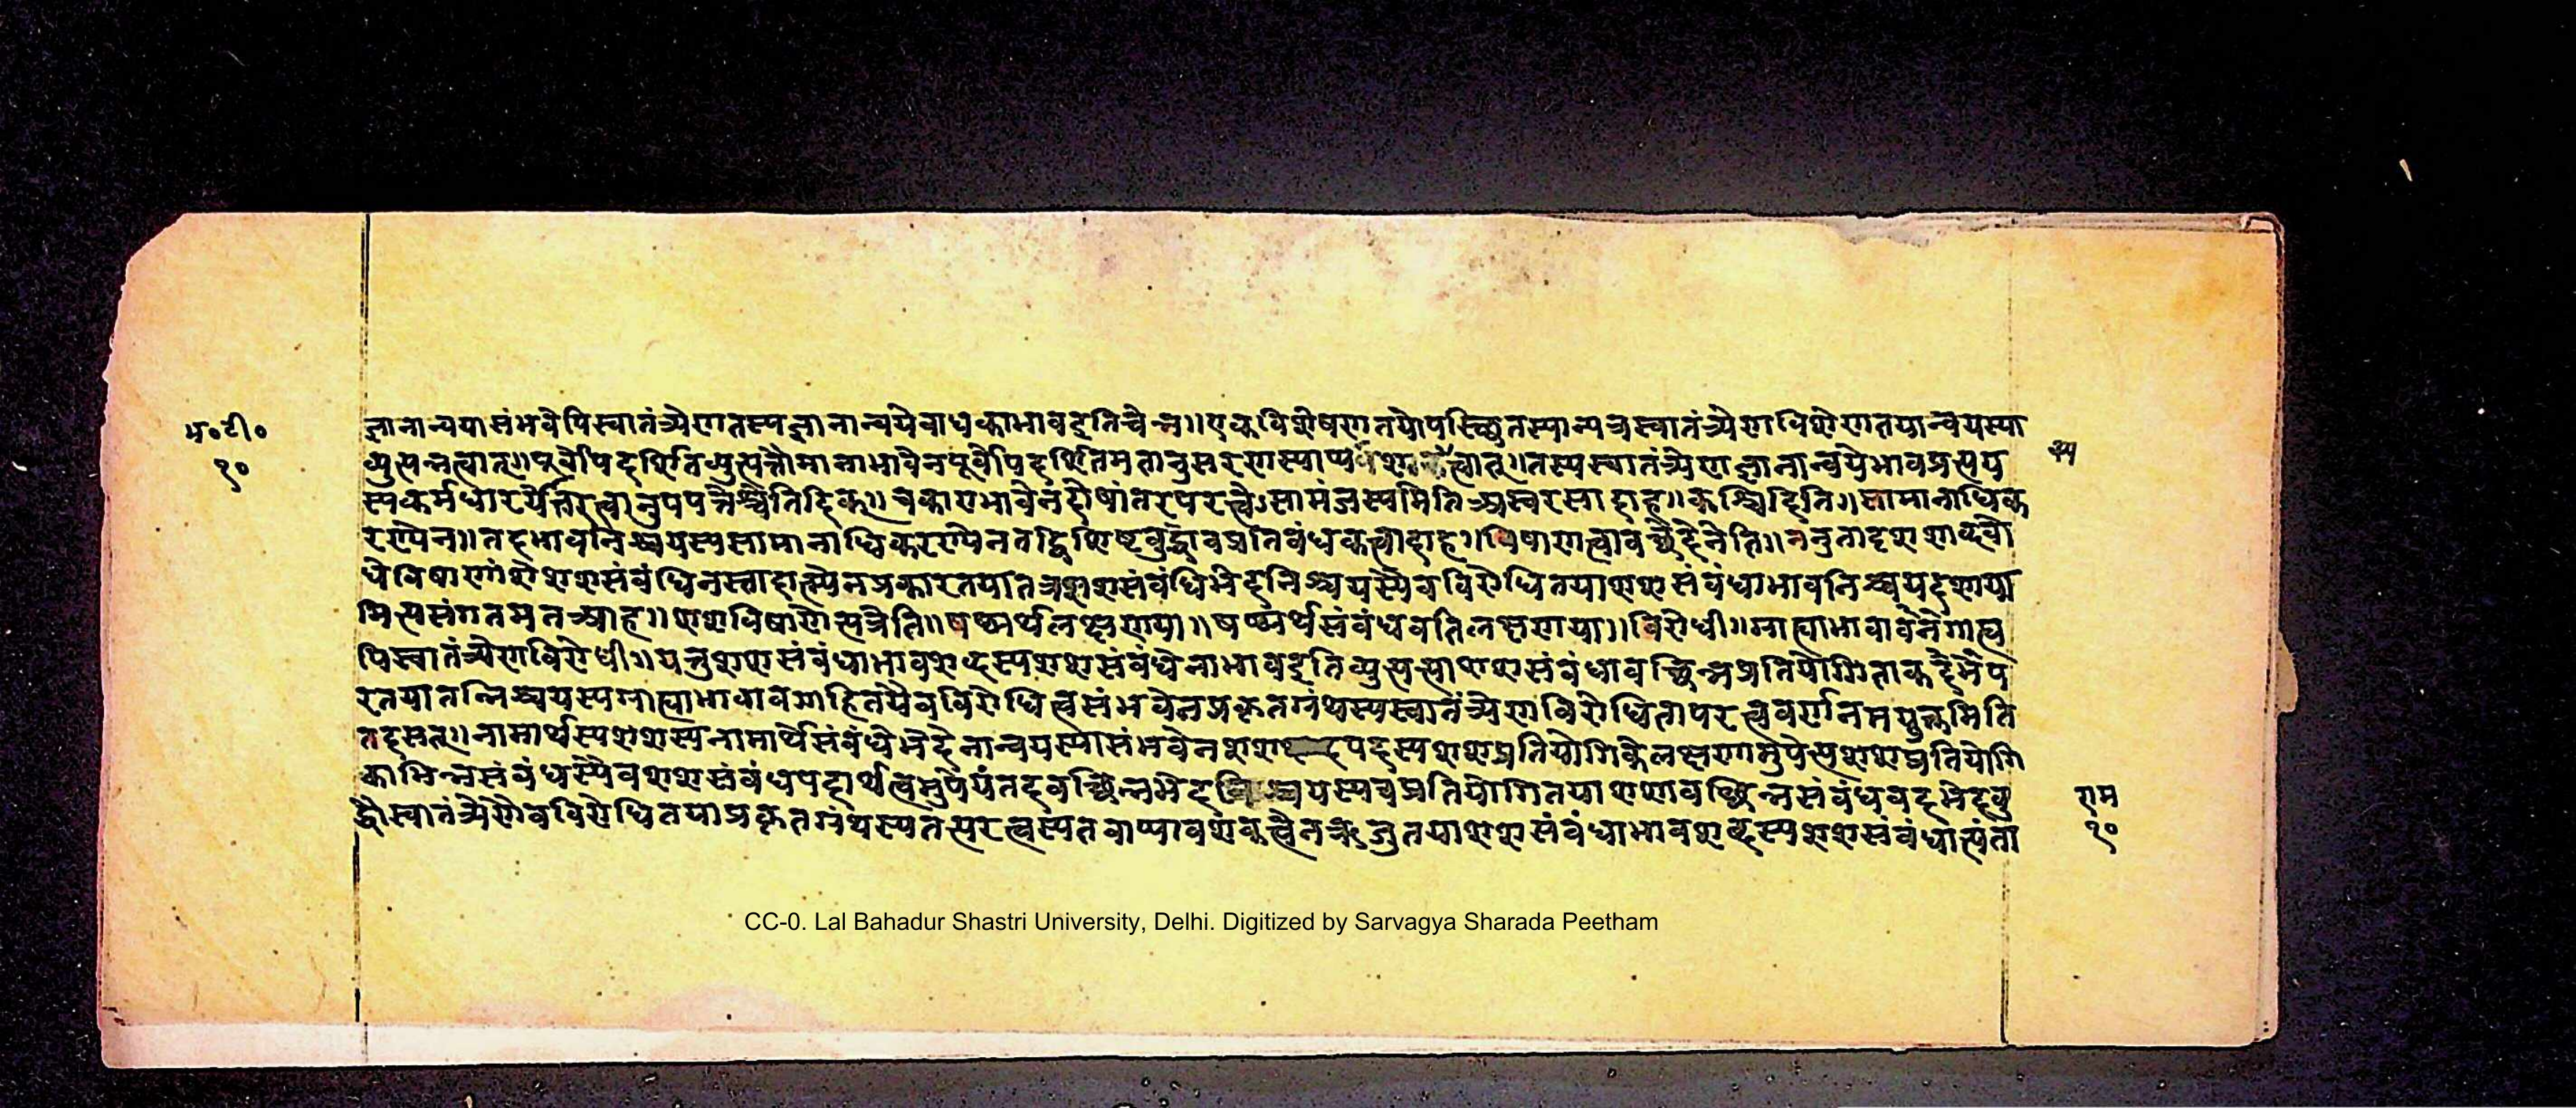 भ॰टी॰
१०
ज्ञानान्वयासंभवेपिस्वातंत्र्येणतस्यज्ञानान्वयेबाधकाभावइतिचेन्न॥एकविशेषणतयोपस्थितस्यान्यत्रस्वातंत्र्येणविशेषणतयान्वयस्या
व्युत्पन्नत्वात्॥पूर्वोपिदर्शितव्युत्पत्तौमानाभावेनपूर्वोपिदर्शितमतानुसरणस्याप्या त्वात्॥तस्यस्वातंत्र्येणज्ञानान्वयेभावप्रत्यय
स्यकर्मधारयोत्तरत्वानुपपत्तेश्चेतिदिक्॥चकाराभावेनदोषांतरपरत्वेऽसामंजस्यमितिअस्वरसादाह॥कश्चिदिति॥सामानाधिक
रण्येन॥तदभावनिश्चयस्यसामानाधिकरण्येनतद्विशिष्टबुद्धावप्रतिबंधकत्वादाह॥विषाणत्वावच्छेदेनेति॥ननुतादृशशाब्दबो
धेविषाणांशेशशसंबंधिनस्तादात्म्येनप्रकारतयातत्रशशसंबंधिभेदनिश्चयस्यैवविरोधितयाशशसंबंधाभावनिश्चयदशाया
मित्यसंगतमतआह॥शशविषाणेत्यत्रेति॥षष्ठ्यर्थलक्षणाया॥षष्ठ्यर्थसंबंधवतिलक्षणाया॥विरोधी॥ग्राह्याभावावनेगाह्य
पिस्वातंत्र्येणविरोधी॥यत्तुशशसंबंधाभावशब्दस्यशशसंबंधेनाभावइतिव्युत्पत्त्याशशसंबंधावच्छिन्नप्रतियोगिताकभेदप
रतयातन्निश्चयस्यग्राह्याभावावगाहितयैवविरोधित्वसंभवेनप्रकृतग्रंथस्यस्वातंत्र्येणविरोधितापरत्ववर्णनमयुक्तमिति
तदसत्॥नामार्थस्यशशस्यनामार्थेसंबंधेभेदेनान्वयस्यासंभवेनशश पदस्यशशप्रतियोगिकेलक्षणामुपेत्यशशप्रतियोगि
काभिन्नसंबंधस्यैवशशसंबंधपदार्थत्वमुपेयंतदवच्छिन्नभेद श्चयस्यचप्रतियोगितयाशशावच्छिन्नसंबंधवदभेदबु
द्धौस्वातंत्र्येणैवविरोधितयाप्रकृतग्रंथस्यतत्परत्वस्यतवाप्यावश्यकत्वेनऋजुतयाशशसंबंधाभावशब्दस्यशशसंबंधात्यंता
राम
१०
CC-0. Lal Bahadur Shastri University, Delhi. Digitized by Sarvagya Sharada Peetham